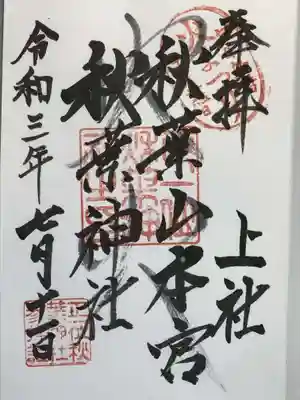 奉拝
上社
秋葉山本宮
秋葉神社
令和三年七月十一日